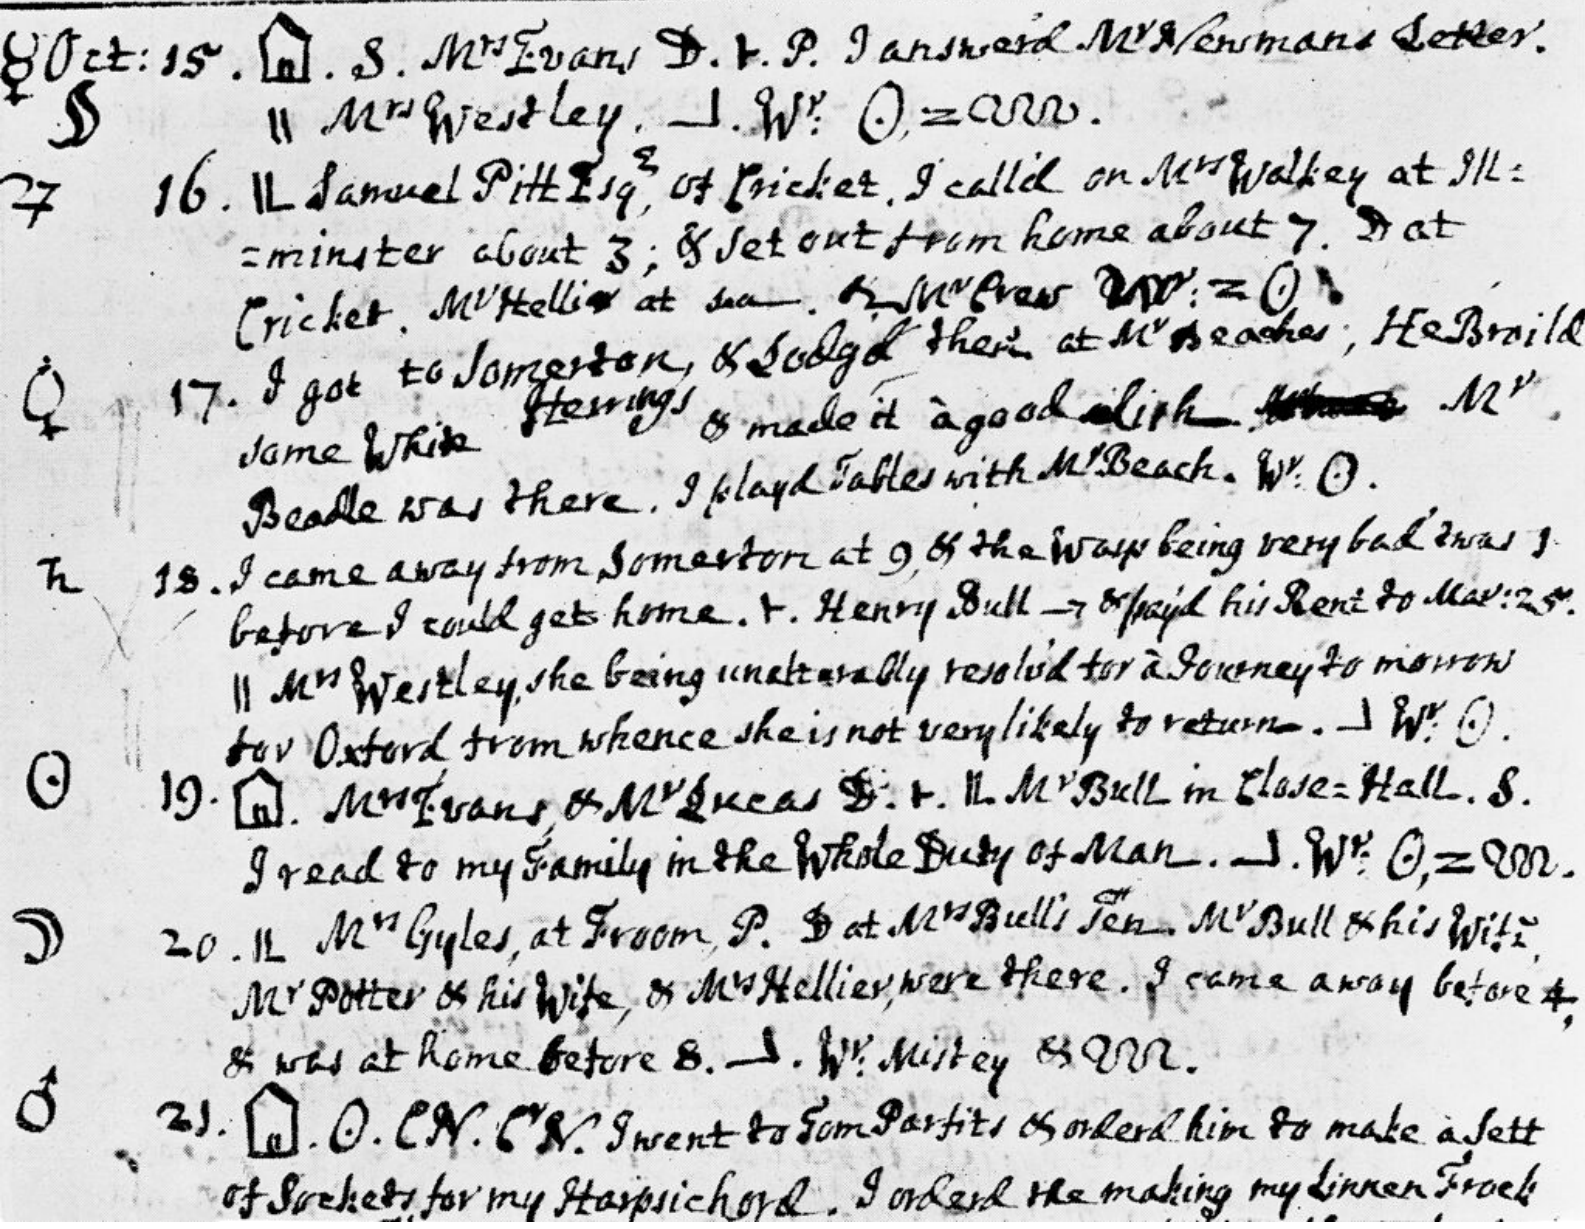 ☿ Oct: 15. S. Mrs Evans D. t. P. I answerd Mr Newmans Letter.
|| Mrs Westley. ⅃. Wr: ☉, =
♃ 16. IL Samuel Pitt Esqr, of Cricket. I call'd on Mrs Walkey at Ill=
=minster about 3; & set out from home about 7. D at
Cricket. Mr Hellier at . & Mr Crew Wr: = ☉
♀ 17. I got to Somerton, & Lodgd there at Mr Beaches; He Broild
some White Herrings & made it à good dish. Mr
Beadle was there. I playd Tables with Mr Beach. Wr: ☉.
♄ 18. I came away from Somerton at 9, & the Ways being very bad 'twas 1
before I could get home. t. Henry Bull → & pay'd his Rent to Mar: 25.
|| Mrs Westley, she being unalterably resolv'd for à Journey to morrow
for Oxford from whence she is not very likely to return. ⅃ Wr: ☉.
☉ 19. Mrs Evans, & Mr Lucas D. t. IL Mr Bull in Close=Hall. S.
I read to my Family in the Whole Duty of Man. ⅃. Wr: ☉, =
☽ 20. IL Mrs Gyles, at Froom, P. D at Mrs Bull's Ten. Mr Bull & his Wife,
Mr Potter & his Wife, & Mrs Hellier, were there. I came away before 4,
& was at home before 8. ⅃. Wr: Mistey &
♂ 21. O. CN. CrN. I went to Tom Parfits & orderd him to make à Sett
of Sockets for my Harpsichord. I orderd the making my Linnen Frock